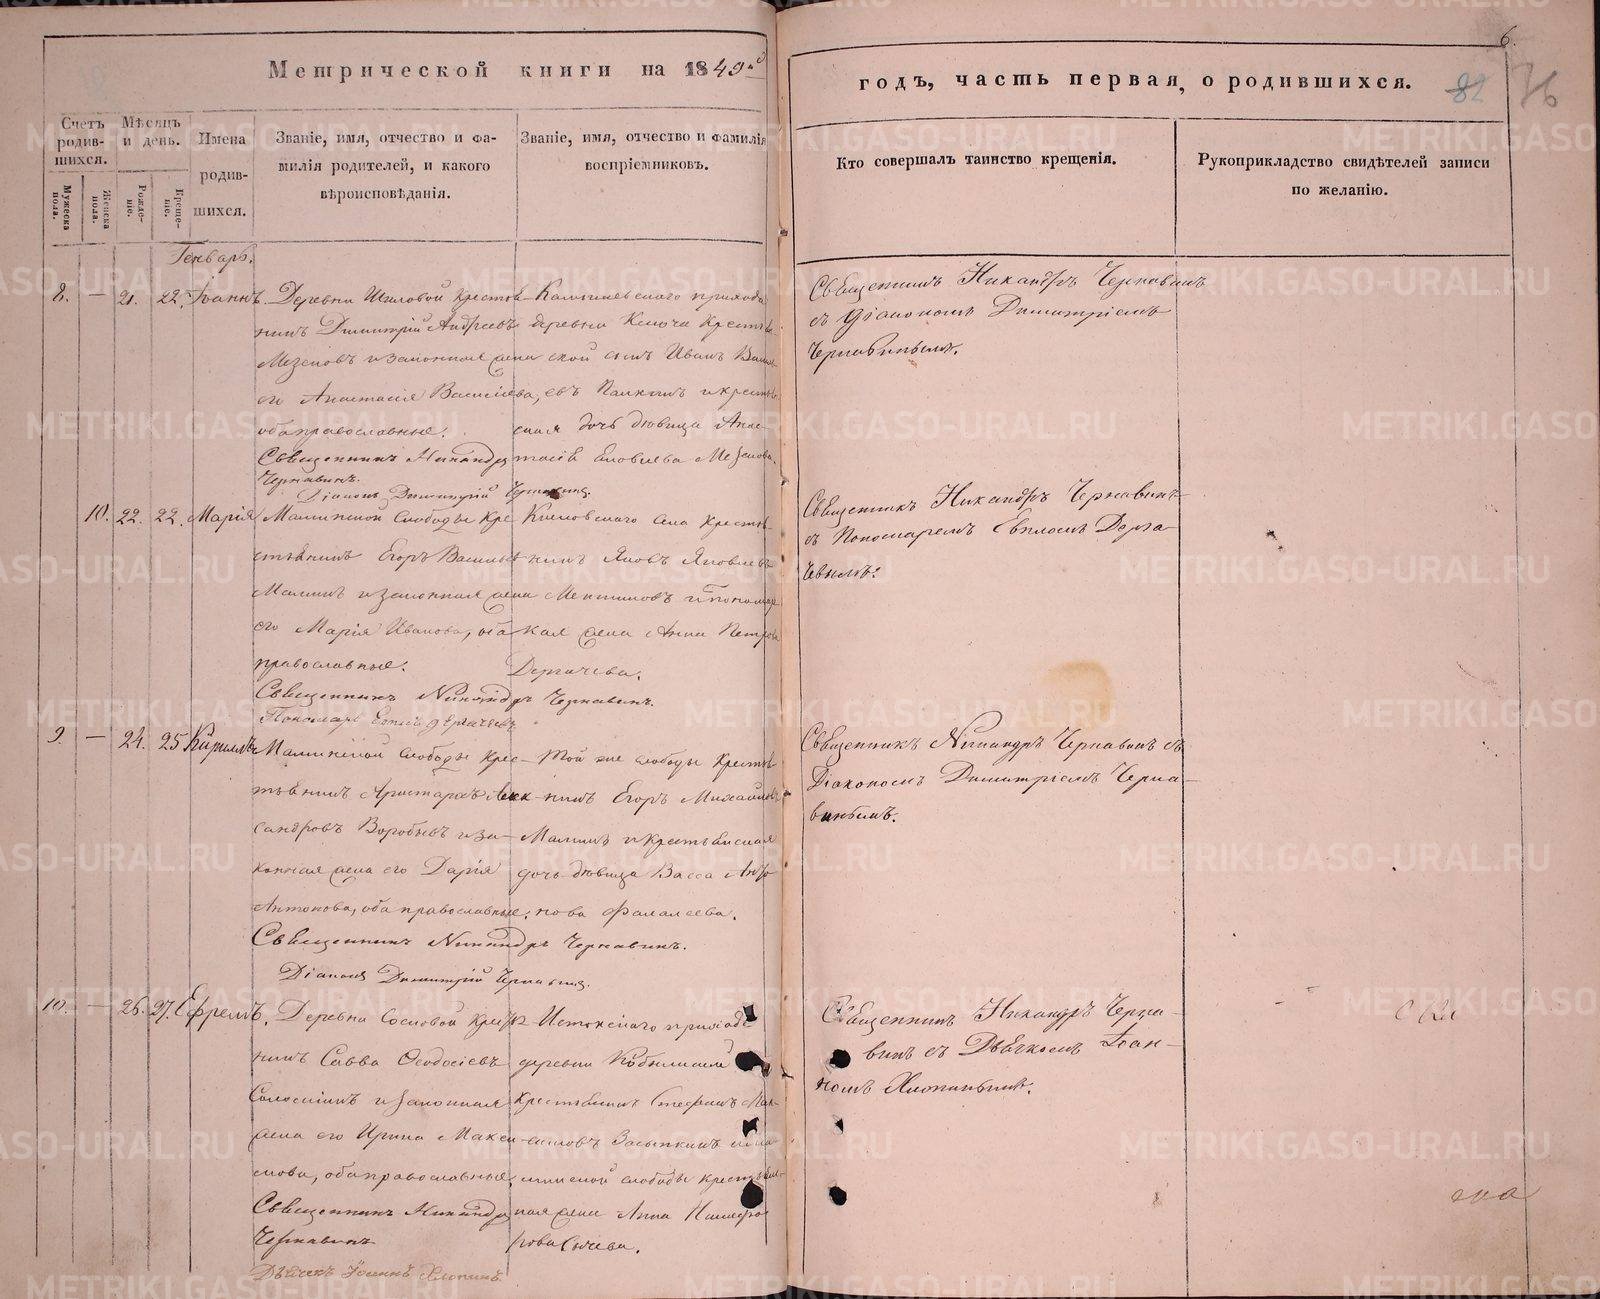 Метрической книги на 1849й
годъ, часть первая, о родившихся.
6.
82
76
Счетъ родив-шихся.
Мѣсяцъ и день.
Имена родив-шихся.
Званіе, имя, отчество и фа-
милія родителей, и какого
вѣроисповѣданія.
Званіе, имя, отчество и фамилія
воспріемниковъ.
Кто совершалъ таинство крещенія.
Рукоприкладство свидѣтелей записи
по желанію.
Мужеска пола.
Женска пола.
Рожде-ніе.
Креще-ніе.
Генварь.
8. — 21. 22. Іоаннъ.
Деревни Шиловой крестья
нинъ Димитрій Андреевъ
Мезеновъ и законная жена
его Анастасія Васильева,
оба православные.
Священникъ Никандръ
Чернавинъ.
Діаконъ Димитрій Чернавинъ.
прихода
деревни Ключи крестья
ской сынъ Иванъ
и крестья
ская дочь дѣвица Анас-
тасія Яковлева Мезенова.
Священникъ Никандръ Чернавинъ
съ Діакономъ Димитріемъ
Чернавинымъ.
10. 22. 22. Марія
Маминской слободы кре
стьянинъ Егоръ Васильевъ
Маминъ и законная жена
его Марія Иванова, оба
православные.
Священникъ Никандръ Чернавинъ.
Пономарь Евплъ Дергачевъ.
села крестья
нинъ Яковъ Яковлевъ
и пономар
ская жена Анна Петрова
Дергачева.
Священникъ Никандръ Чернавинъ
съ Пономаремъ Евпломъ Дерга-
чевымъ.
9. — 24. 25. Кириллъ
Маминской слободы крес-
тьянинъ Аристархъ Алек
сандровъ Воробьевъ и за-
конная жена его Дарія
Антонова, оба православные.
Священникъ Никандръ Чернавинъ.
Діаконъ Димитрій Чернавинъ.
Той же слободы крестья
нинъ Егоръ Михайловъ
Маминъ и крестьянская
дочь дѣвица Васса Андро
нова Фалалеева.
Священникъ Никандръ Чернавинъ съ
Діакономъ Димитріемъ Черна-
винымъ.
10. — 26. 27. Ефремъ.
Деревни Сосновой крестья
нинъ Савва Ѳеодосіевъ
и законная
жена его Ирина Макси
мова, оба православные.
Священникъ Никандръ
Чернавинъ
Дьячекъ Іоаннъ Хлопинъ.
Истокскаго прихода
деревни
крестьянинъ Стефанъ Мак-
симовъ
минской слободы крестьян-
ная жена Анна Никифо
рова Сычева.
Священникъ Никандръ Черна-
винъ съ Дьячкомъ Іоан-
номъ Хлопинымъ.
METRIKI.GASO-URAL.RU